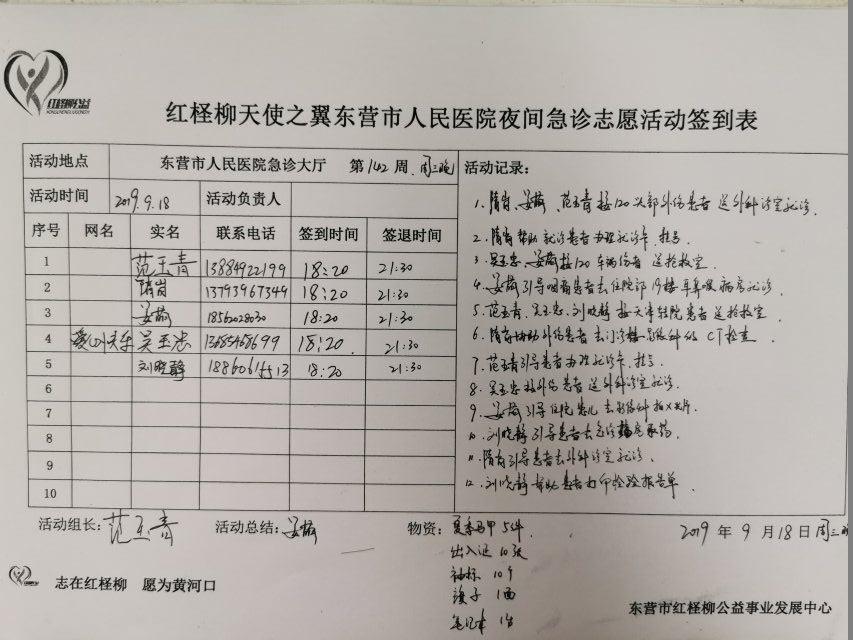 红柽柳公益
HONGCHENGLIUGONGYI
红柽柳天使之翼东营市人民医院夜间急诊志愿活动签到表
活动地点 东营市人民医院急诊大厅 第142周.周三晚
活动时间 2019.9.18 活动负责人
序号 网名 实名 联系电话 签到时间 签退时间
1 范玉青 13884922199 18:20 21:30
2 隋岗 13793967349 18:20 21:30
3 18562028030 18:20 21:30
4 吴玉忠 13485468699 18:20. 21:30
5 刘晓静 18860615513 18:20 21:30
6
7
8
9
10
活动记录：
1. 隋岗、范玉青接120头部外伤患者送外科诊室就诊.
2. 隋岗帮助就诊患者办理就诊卡.挂号
3. 吴玉忠、接120车祸伤者送抢救室.
4. 引导咽痛患者去住院部19楼耳鼻喉病房就诊.
5. 范玉青、吴玉忠、刘晓静接天津转院患者送抢救室
6. 隋岗协助外伤患者去门诊楼影像科做CT检查.
7. 范玉青引导患者办理就诊卡.挂号
8. 吴玉忠接外伤患者送外科诊室就诊.
9. 引导住院患儿去影像科拍X光片.
10. 刘晓静引导患者去急诊楼取药.
11. 隋岗引导患者去外科诊室就诊.
12. 刘晓静帮助患者打印检验报告单.
活动组长：范玉青 活动总结： 物资：夏季马甲5件
出入证10张
袖标10个
旗子1面
笔记本1台
2019年9月18日周三晚
志在红柽柳 愿为黄河口
东营市红柽柳公益事业发展中心